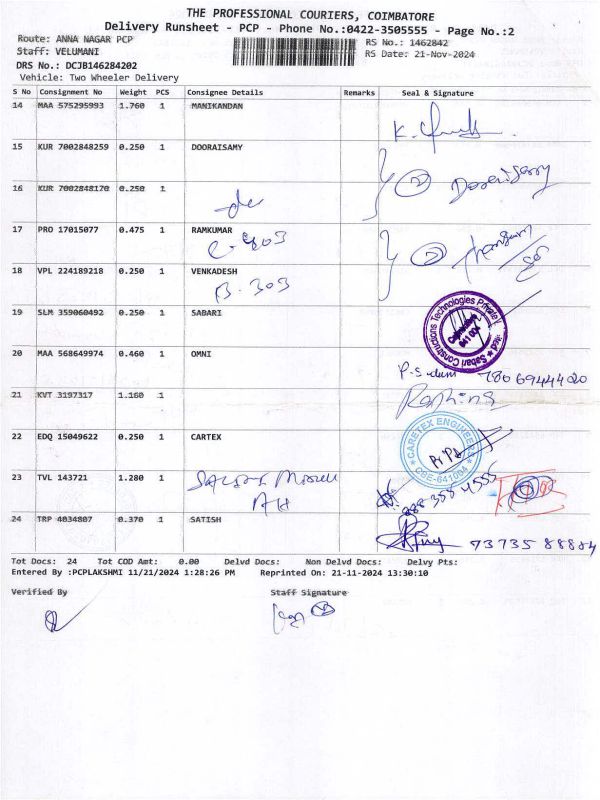 THE PROFESSIONAL COURIERS, COIMBATORE
Delivery Runsheet - PCP - Phone No.:0422-3505555 - Page No.:2
Route: ANNA NAGAR PCP RS No.: 1462842
Staff: VELUMANI RS Date: 21-Nov-2024
DRS No.: DCJB146284202
Vehicle: Two Wheeler Delivery
S No Consignment No Weight PCS Consignee Details Remarks Seal & Signature
14 MAA 575295993 1.760 1 MANIKANDAN
15 KUR 7002848259 0.250 1 DOORAISAMY
16 KUR 7002848170 0.250 1
Dooraisamy
17 PRO 17015077 0.475 1 RAMKUMAR
C-403
18 VPL 224189218 0.250 1 VENKADESH
B-303
19 SLM 359060492 0.250 1 SABARI
Sabari Constructions Technologies Private Ltd.
Coimbatore
641 004
20 MAA 568649974 0.460 1 OMNI
7806944420
21 KVT 3197317 1.160 1
22 EDQ 15049622 0.250 1 CARTEX
CARETEX ENGINEERS
CBE-641004
23 TVL 143721 1.280 1
24 TRP 4034807 0.370 1 SATISH
Tot Docs: 24 Tot COD Amt: 0.00 Delvd Docs: Non Delvd Docs: Delvy Pts:
Entered By :PCPLAKSHMI 11/21/2024 1:28:26 PM Reprinted On: 21-11-2024 13:30:10
Verified By Staff Signature